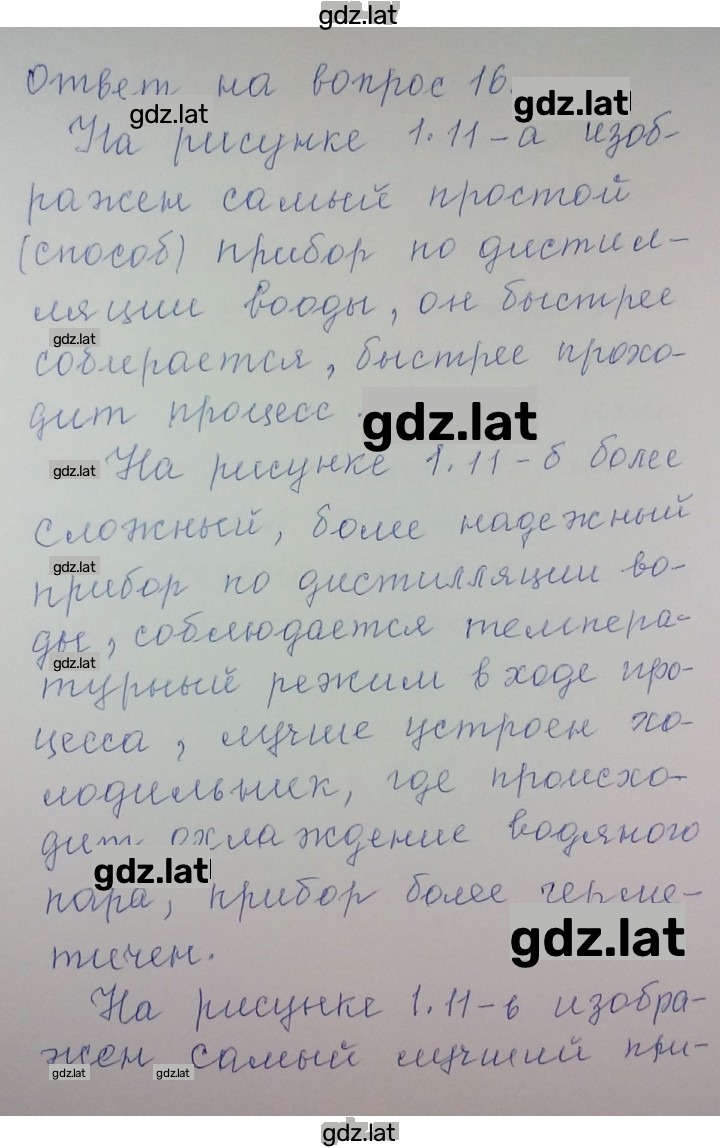 gdz.lat
Ответ на вопрос 16.
gdz.lat
gdz.lat
На рисунке 1.11-а изоб-
ражен самый простой
(способ) прибор по дистил-
ляции вооды, он быстрее
gdz.lat
собирается, быстрее прохо-
дит процесс.
gdz.lat
gdz.lat
На рисунке 1.11-б более
сложный, более надежный
gdz.lat
прибор по дистилляции во-
ды, соблюдается темпера-
gdz.lat
турный режим в ходе про-
цесса, лучше устроен хо-
лодильник, где происхо-
дит охлаждение водяного
gdz.lat
пара, прибор более герме-
gdz.lat
тичен.
На рисунке 1.11-в изобра-
жен самый лучший при-
gdz.lat
gdz.lat
gdz.lat